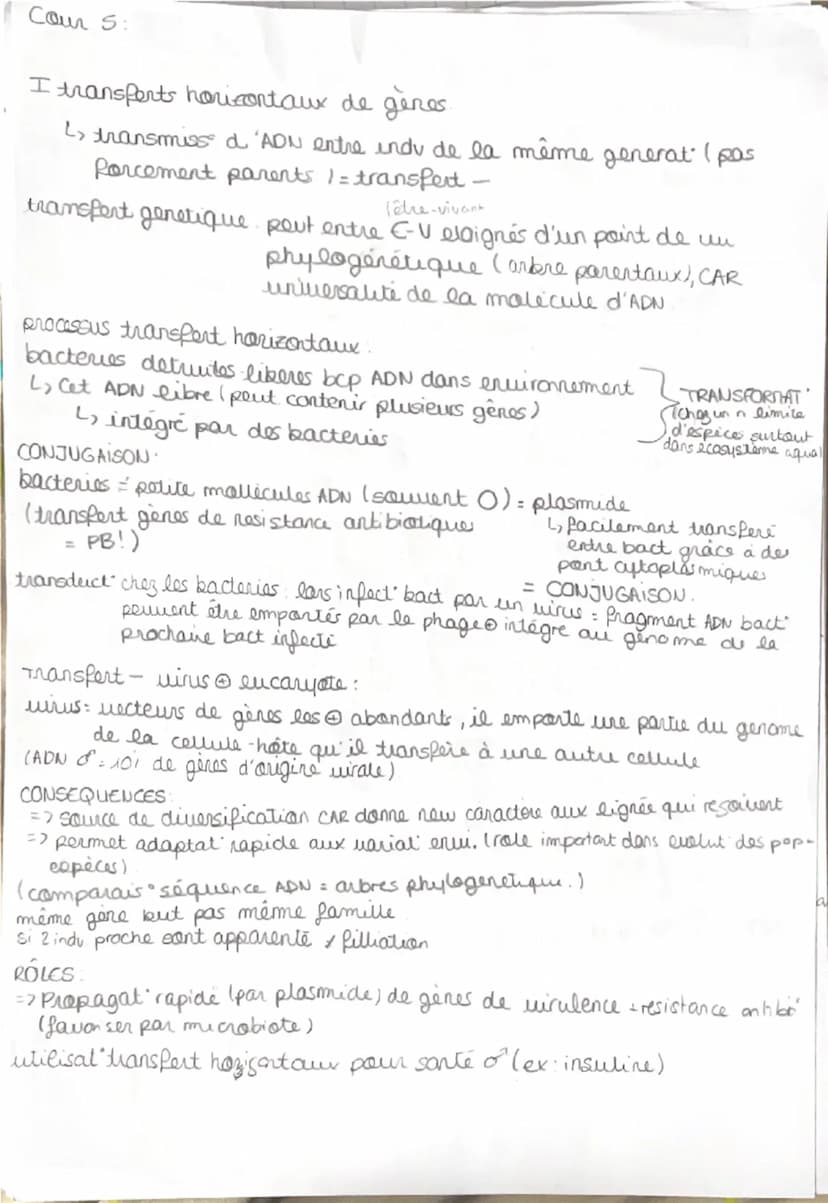 Cour 5:
I transferts horizontaux de gènes
↳ transmiss° d'ADN entre indv de la même generat° (pas
forcement parents) = transfert –
(être-vivant
transfert genetique peut entre E-V eloignés d'un point de vu
phylogénétique (arbre parentaux), CAR
universalité de la molécule d'ADN
processus transfert horizontaux.
bacteries detruites liberes bcp ADN dans environnement
↳ Cet ADN libre (peut contenir plusieurs gênes)
↳ intégré par des bacteries
TRANSFORMAT°
(chez un n limite
d'espèces surtout
dans écosystème aqua
CONJUGAISON:
bacteries = petite mollécules ADN (souvent O) = plasmide
(transfert gènes de resistance antibiotique
= PB!)
↳ facilement transferé
entre bact grâce à des
pont cytoplasmiques
= CONJUGAISON.
transduct° chez les bacteries: lors infect° bact par un virus = fragment ADN bact°
peuvent être emportés par le phage ⊕ intégre au génome de la
prochaine bact infecté
Transfert – virus ⊕ eucaryote:
virus: vecteurs de gènes les ⊕ abondants, il emporte une partie du genome
de la cellule-hôte qu'il transfère à une autre cellule
(ADN ♂ = 10% de gènes d'origine virale)
CONSEQUENCES:
=> source de diversification CAR donne new caractère aux lignée qui resoivent
=> permet adaptat° rapide aux variat° envi. (role important dans evolut° des pop-
espèces)
(comparais° séquence ADN = arbres phylogenetique.)
même gène but pas même famille
si 2 indv proche sont apparenté filliation
RÔLES:
=> Propagat° rapide (par plasmide) de gènes de virulence + resistance antibio°
(favoriser par microbiote)
utilisat° transfert horizontaux pour santé ♂ (ex: insuline)